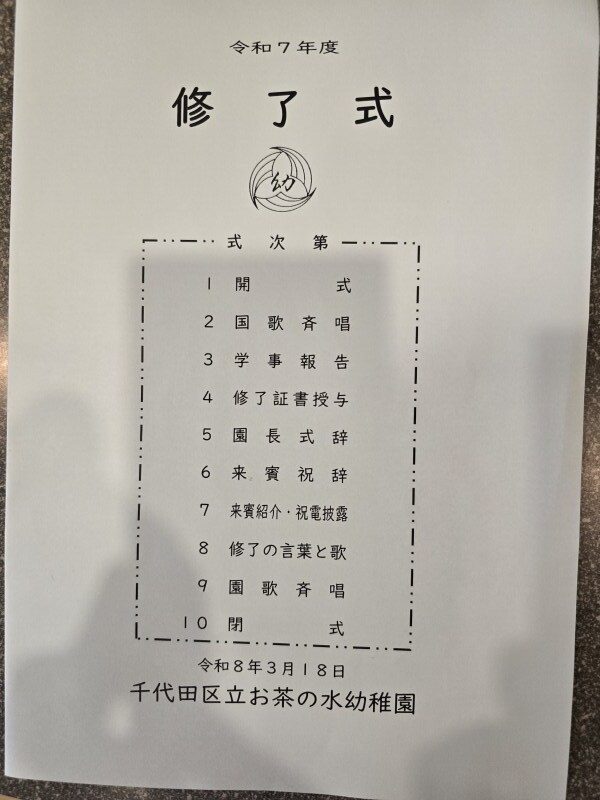 令和7年度
修了式
幼
式次第
1 開式
2 国歌斉唱
3 学事報告
4 修了証書授与
5 園長式辞
6 来賓祝辞
7 来賓紹介・祝電披露
8 修了の言葉と歌
9 園歌斉唱
10 閉式
令和8年3月18日
千代田区立お茶の水幼稚園